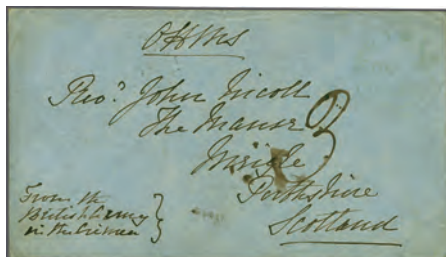 OHMS
Revd. John Nicoll
The Manse
Meigle
3
Perthshire
Scotland
From the
British Army
in the Crimea